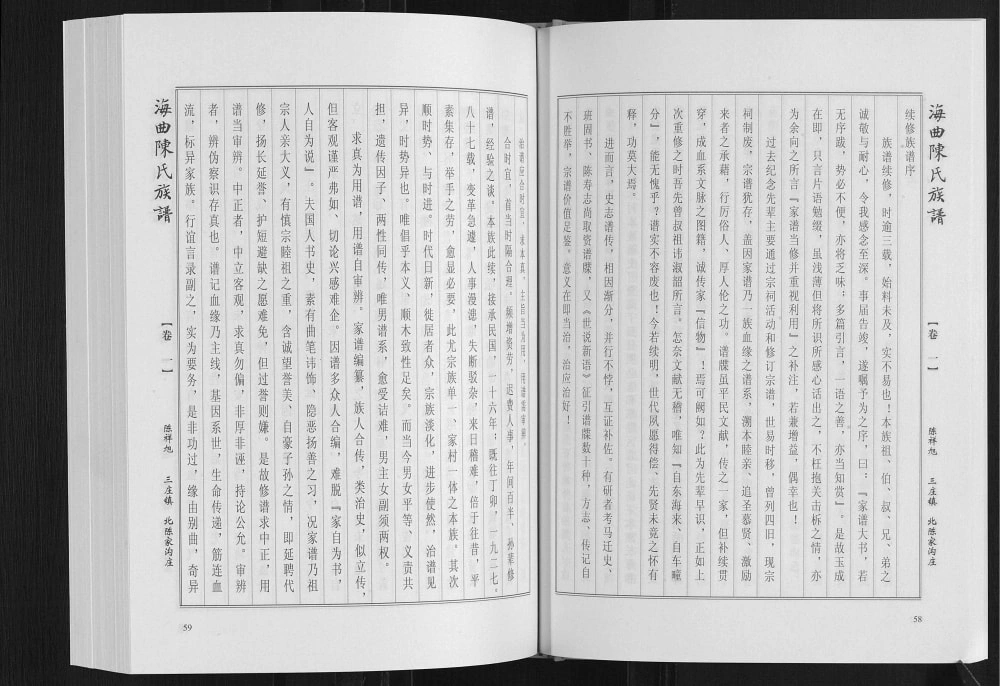 海曲陳氏族譜
【卷 一】
陈祥旭 三庄镇 北陈家沟庄
58
续修族谱序
族谱续修，时逾三载，始料未及，实不易也！本族祖、伯、叔、兄、弟之
诚敬与耐心，令我感念至深。事届告竣，遂嘱予为之序，曰：『家谱大书，若
无序跋，势必不便，亦将乏味；多篇引言，一语之善，亦当知赏』。是故玉成
在即，只言片语勉缀，虽浅薄但将所识所感心话出之，不枉抱关击柝之情，亦
为余向之所言『家谱当修并重视利用』之补注，若兼增益，偶幸也！
过去纪念先辈主要通过宗祠活动和修订宗谱，世易时移，曾列四旧，现宗
祠制废，宗谱犹存，盖因家谱乃一族血缘之谱系，溯本睦亲、追圣慕贤、激励
来者之承藉，行厉俗人、厚人伦之功。谱牒虽平民文献，传之一家，但补续贯
穿，成血系文脉之图籍，诚传家『信物』！焉可阙如？此为先辈早识，正如上
次重修之时吾先曾叔祖讳淑韶所言。怎奈文献无稽，唯知『自东海来、自车疃
分』，能无愧乎？谱实不容废也！今若续明，世代夙愿得偿、先贤未竟之怀有
释，功莫大焉。
进而言，史志谱传，相因渐分，并行不悖，互证补佐。有研者考马迁史、
班固书、陈寿志尚取资谱牒，又《世说新语》征引谱牒数十种，方志、传记自
不胜举，宗谱价值足鉴。意义在即当治，治应治好！
治谱应合时宜，求本真。主旨当为用，用谱需审辨。
合时宜，首当时隔合理。频增资劳，迟费人事，年间百半、孙辈修
谱，经验之谈。本族此续，接承民国，一十六年；既往丁卯，一九二七。
八十七载，变革急遽，人事漫漶，失断驳杂，来日稽难，倍于往昔，平
素集存，举手之劳，愈显必要，此尤宗族单一、家村一体之本族。其次
顺时势、与时进。时代日新，徙居者众，宗族淡化，进步使然，治谱见
异，时势异也。唯倡乎本义、顺木致性足矣。而当今男女平等，义责共
担，遗传因子、两性同传，唯男谱系，愈受诘难，男主女副须两权。
求真为用谱，用谱自审辨。家谱编纂，族人合传，类治史，似立传，
但客观谨严弗如、切论兴感难企。因谱多众人合编，难脱『家自为书，
人自为说』。夫国人书史，素有曲笔讳饰、隐恶扬善之习，况家谱乃祖
宗人亲大义，有慎宗睦祖之重，含诚望誉美、自豪子孙之情，即延聘代
修，扬长延誉、护短避缺之愿难免，但过誉则嫌。是故修谱求中正，用
谱当审辨。中正者，中立客观，求真勿偏，非厚非诬，持论公允。审辨
者，辨伪察识存真也。谱记血缘乃主线，基因系世，生命传递，筋连血
流，标异家族。行谊言录副之，实为要务，是非功过，缘由别曲，奇异
海曲陳氏族譜
【卷 一】
陈祥旭 三庄镇 北陈家沟庄
59